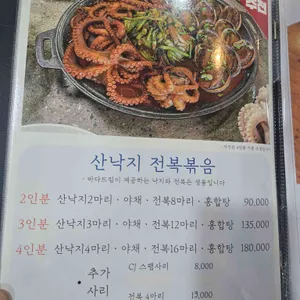 추천
산낙지 전복볶음
- 바다드림이 제공하는 낙지와 전복은 생물입니다
2인분 산낙지2마리 · 야채 · 전복8마리 · 홍합탕 90,000
3인분 산낙지3마리 · 야채 · 전복12마리 · 홍합탕 135,000
4인분 산낙지4마리 · 야채 · 전복16마리 · 홍합탕 180,000
추가 CJ 스팸사리 8,000
사리 전복 4마리 13,000